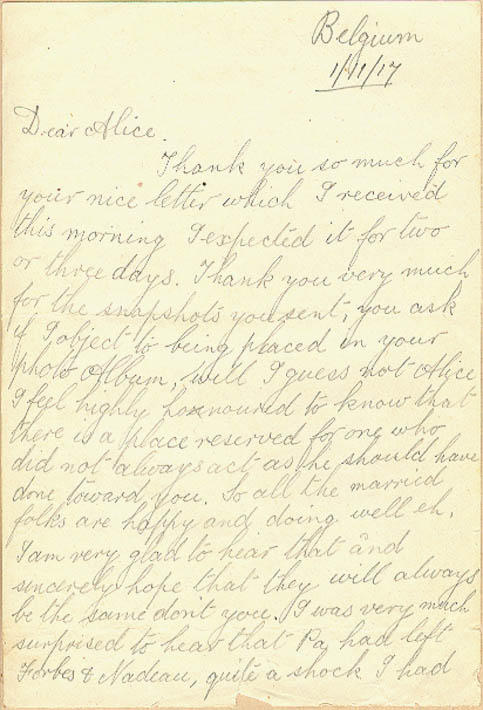 Belgium
1/11/17
Dear Alice.
Thank you so much for
your nice letter which I received
this morning I expected it for two
or three days. Thank you very much
for the snapshots you sent, you ask
if I object to being placed in your
photo Album, well I guess not Alice
I feel highly honoured to know that
there is a place reserved for one who
did not always act as he should have
done toward you. So all the married
folks are happy and doing well eh.
I am very glad to hear that and
sincerely hope that they will always
be the same dont you. I was very much
surprised to hear that Pa had left
Forbes & Nadeau, quite a shock I had